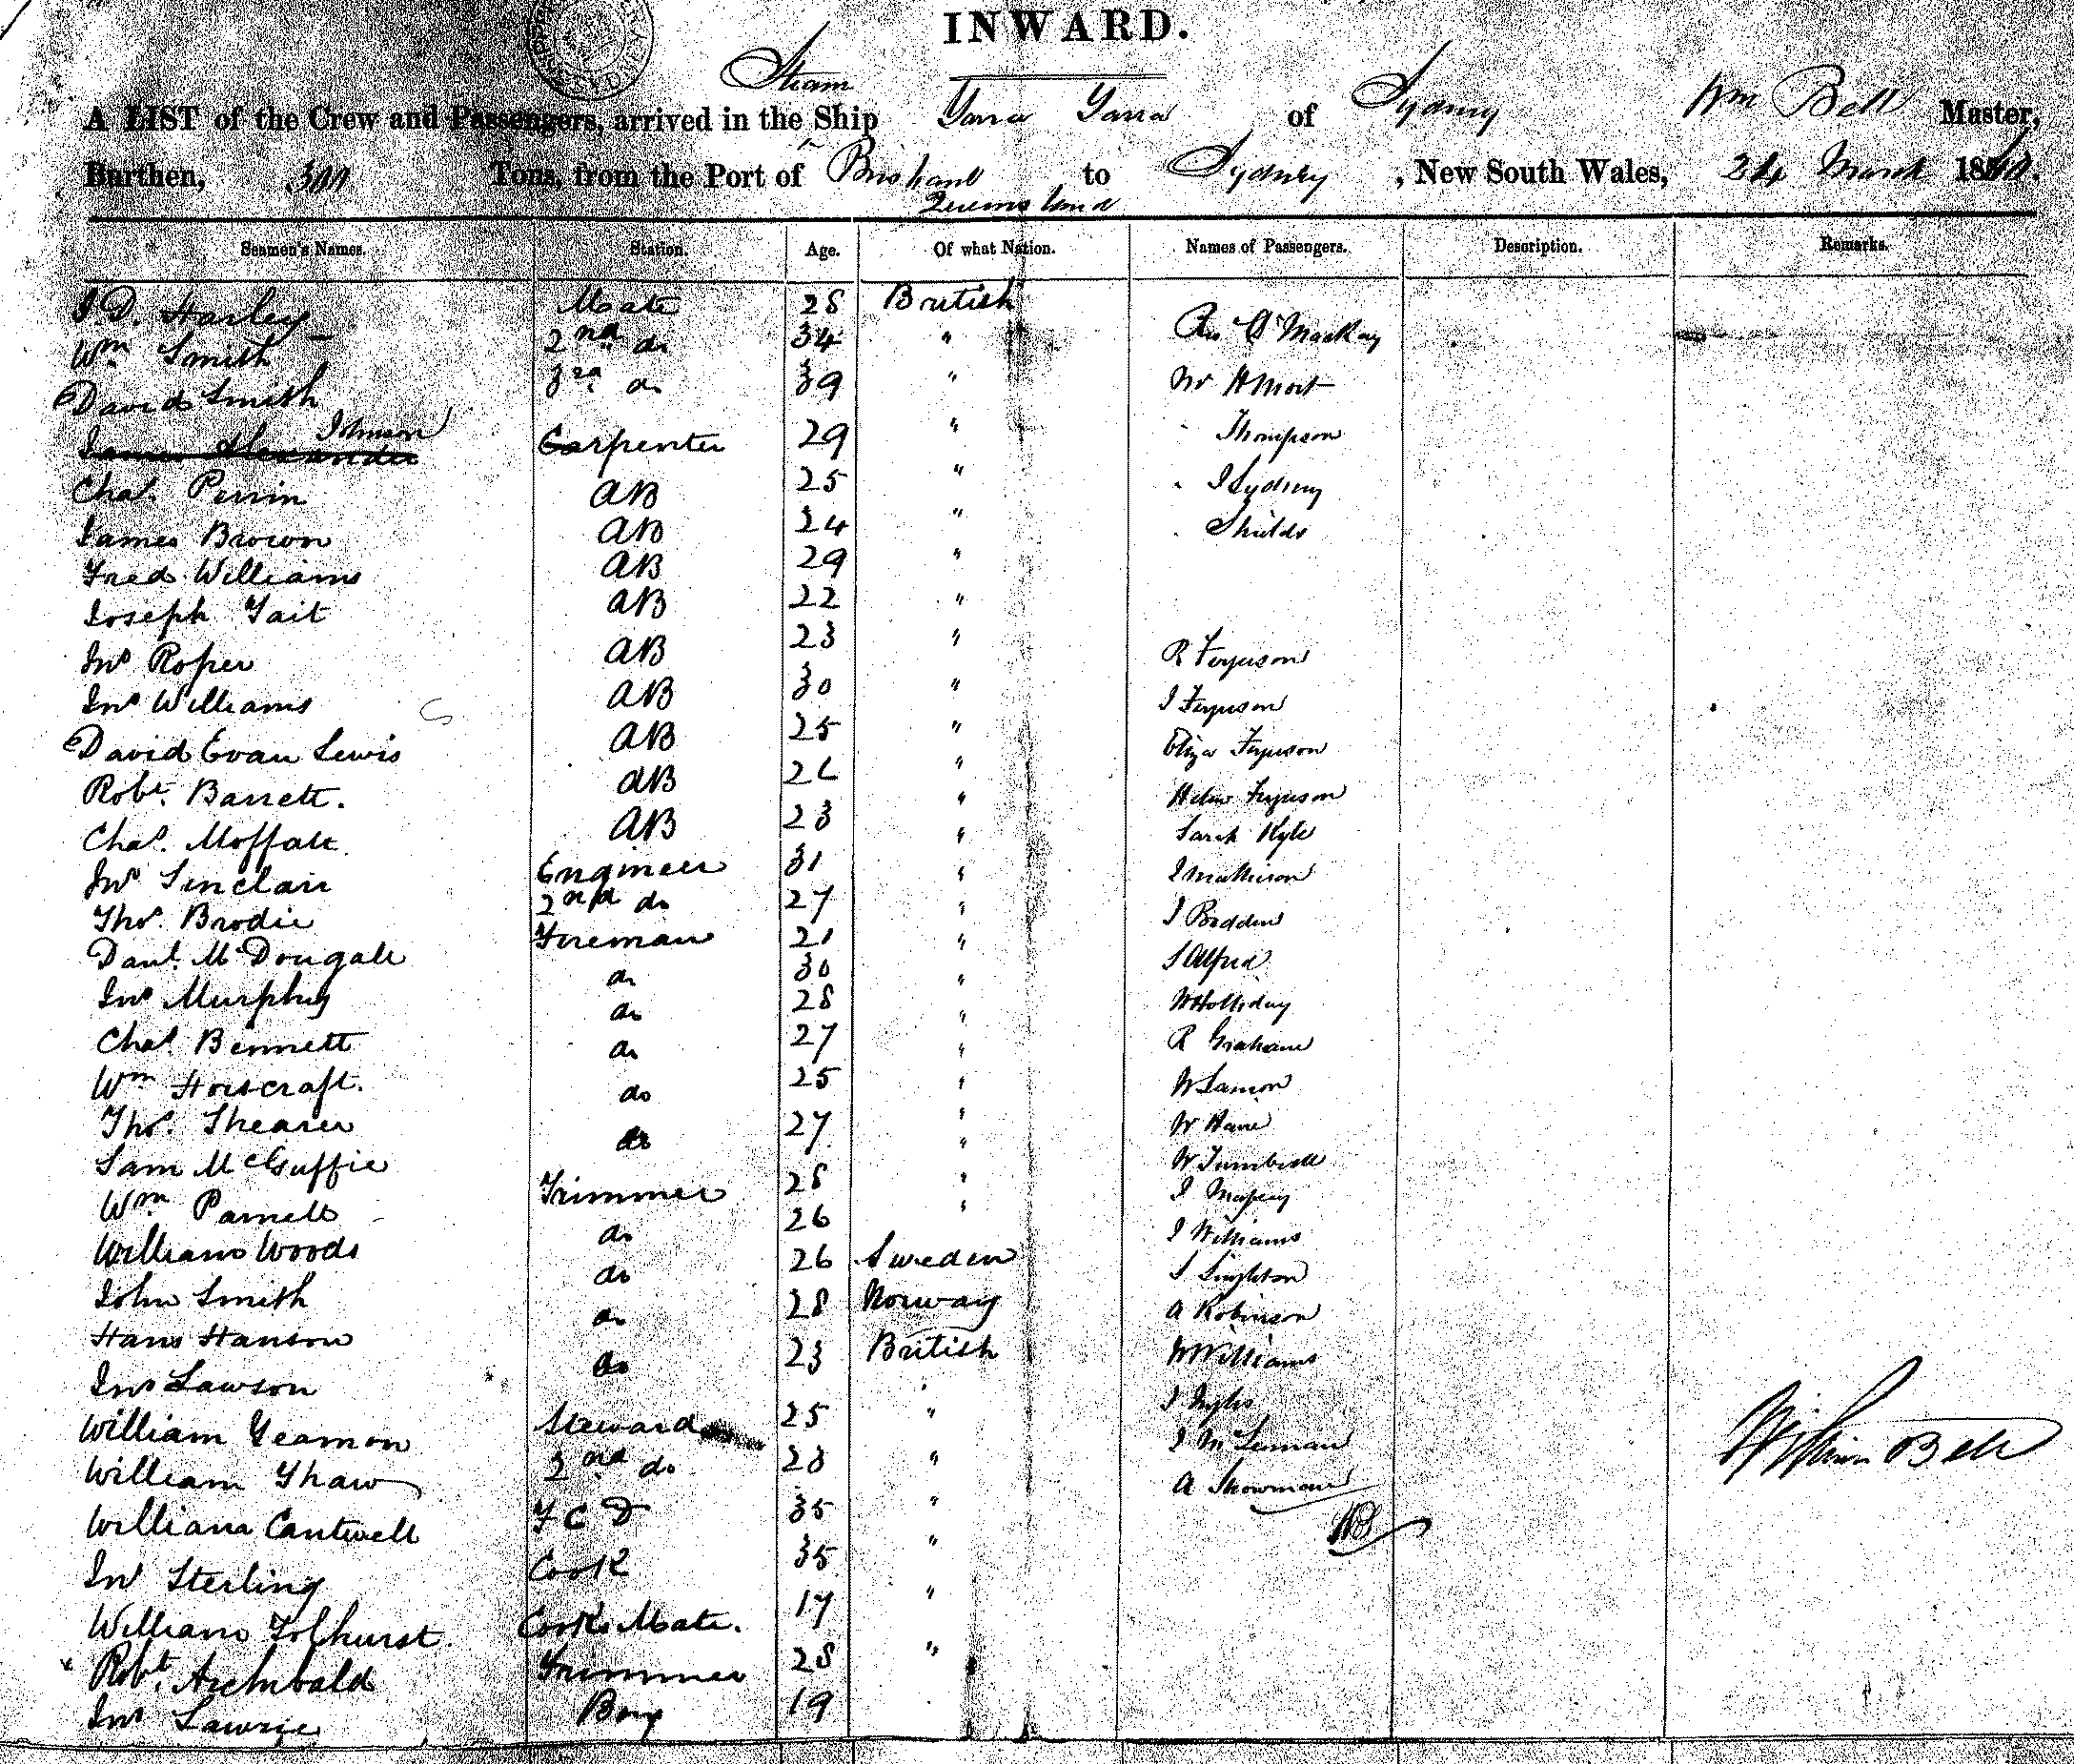 INWARD.
Steam
A LIST of the Crew and Passengers, arrived in the Ship Yarra Yarra of Sydney Wm Bell Master,
Burthen, 300 Tons, from the Port of Brisbane to Sydney, New South Wales, 24 March 18
Queensland
Seamen's Names. Station. Age. Of what Nation. Names of Passengers. Description. Remarks.
J. D. Harley Mate 28 British
Wm Smith 2nd do 34 " Mackay
David Smith 3rd do 39 " Mr H Mort
James Alexander Johnson Carpenter 29 " Thompson
Chas. Perrin AB 25 " J Sydney
James Brown AB 24 " Shields
Fred Williams AB 29 "
Joseph Tait AB 22 "
Jno Roper AB 23 " R Ferguson
Jno Williams AB 30 " J Ferguson
David Evan Lewis AB 25 " Eliza Ferguson
Robt. Barrett. AB 26 " Helen Ferguson
Chas. Moffatt AB 23 " Sarah Kyle
Jno Sinclair Engineer 31 " J Mathieson
Thos. Brodie 2nd do 27 " J
Danl. McDougall Fireman 21 " S Alfred
Jno Murphy do 30 " W Holliday
Chas. Bennett do 28 " R Graham
Wm Horscraft. do 27 " W Lamon
Thos. Shearer do 25 " W Hane
Sam McGuffie do 27 " W Turnbull
Wm Parnell Trimmer 28 " J
William Woods do 26 " J Williams
John Smith do 26 Sweden S Singleton
Hans Hanson do 28 Norway A Robinson
Jno Lawson do 23 British W Williams
William Yeamon Steward 25 " J
William Thaw 2nd do 28 " J McLennan
William Cantwell F C D 35 " A Showman
Jno Sterling Cook 35 " WB
William Tolhurst Cooks Mate. 17 "
Robt. Archibald Trimmer 28 "
Jno Lawrie Boy 19
William Bell